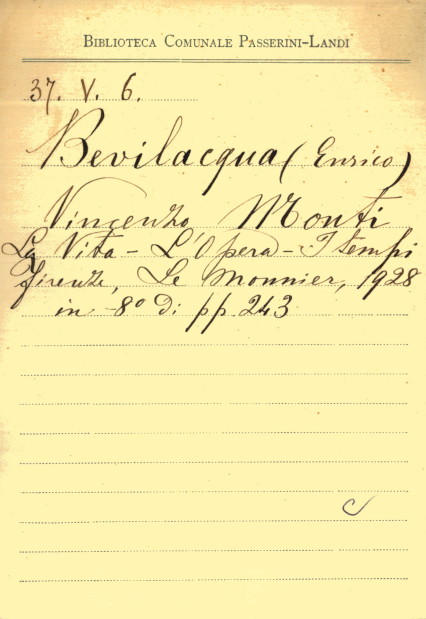 BIBLIOTECA COMUNALE PASSERINI-LANDI
37. V. 6.
Bevilacqua (Enrico)
Vincenzo Monti
La Vita - L'Opera - I tempi
Firenze, Le Monnier, 1928
in -8° di pp. 243